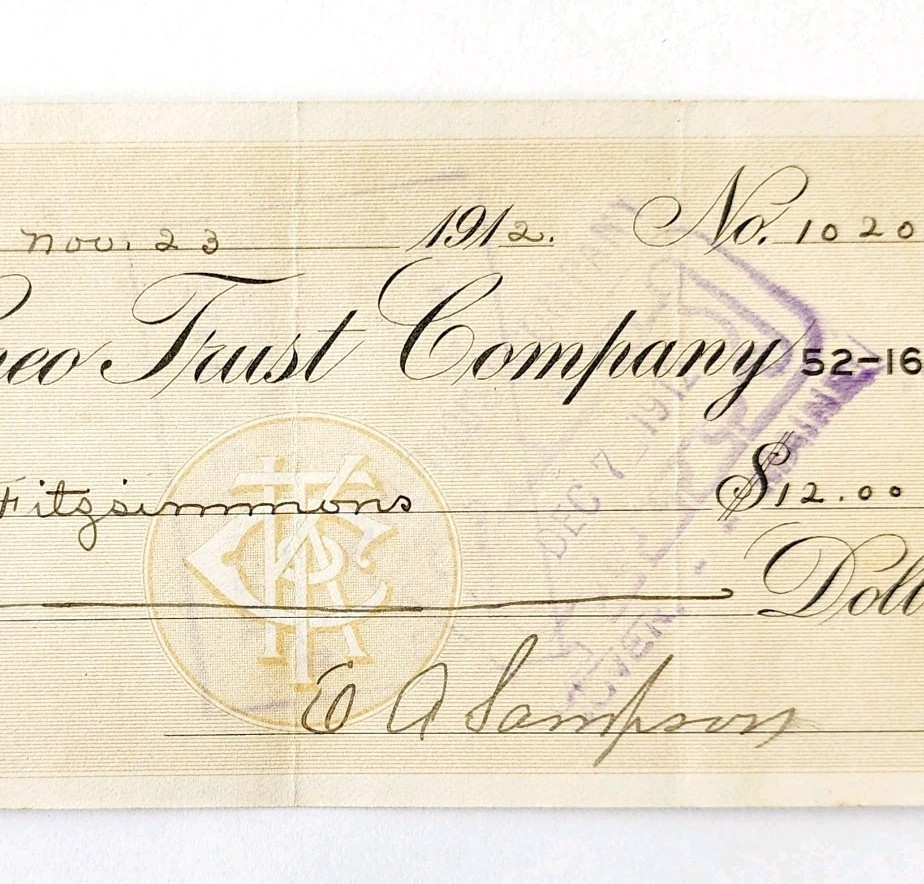 Nov. 23 1912. No. 1020
eo Trust Company 52-16
Fitzsimmons $12.00
Doll
E A Sampson
DEC 7 1912